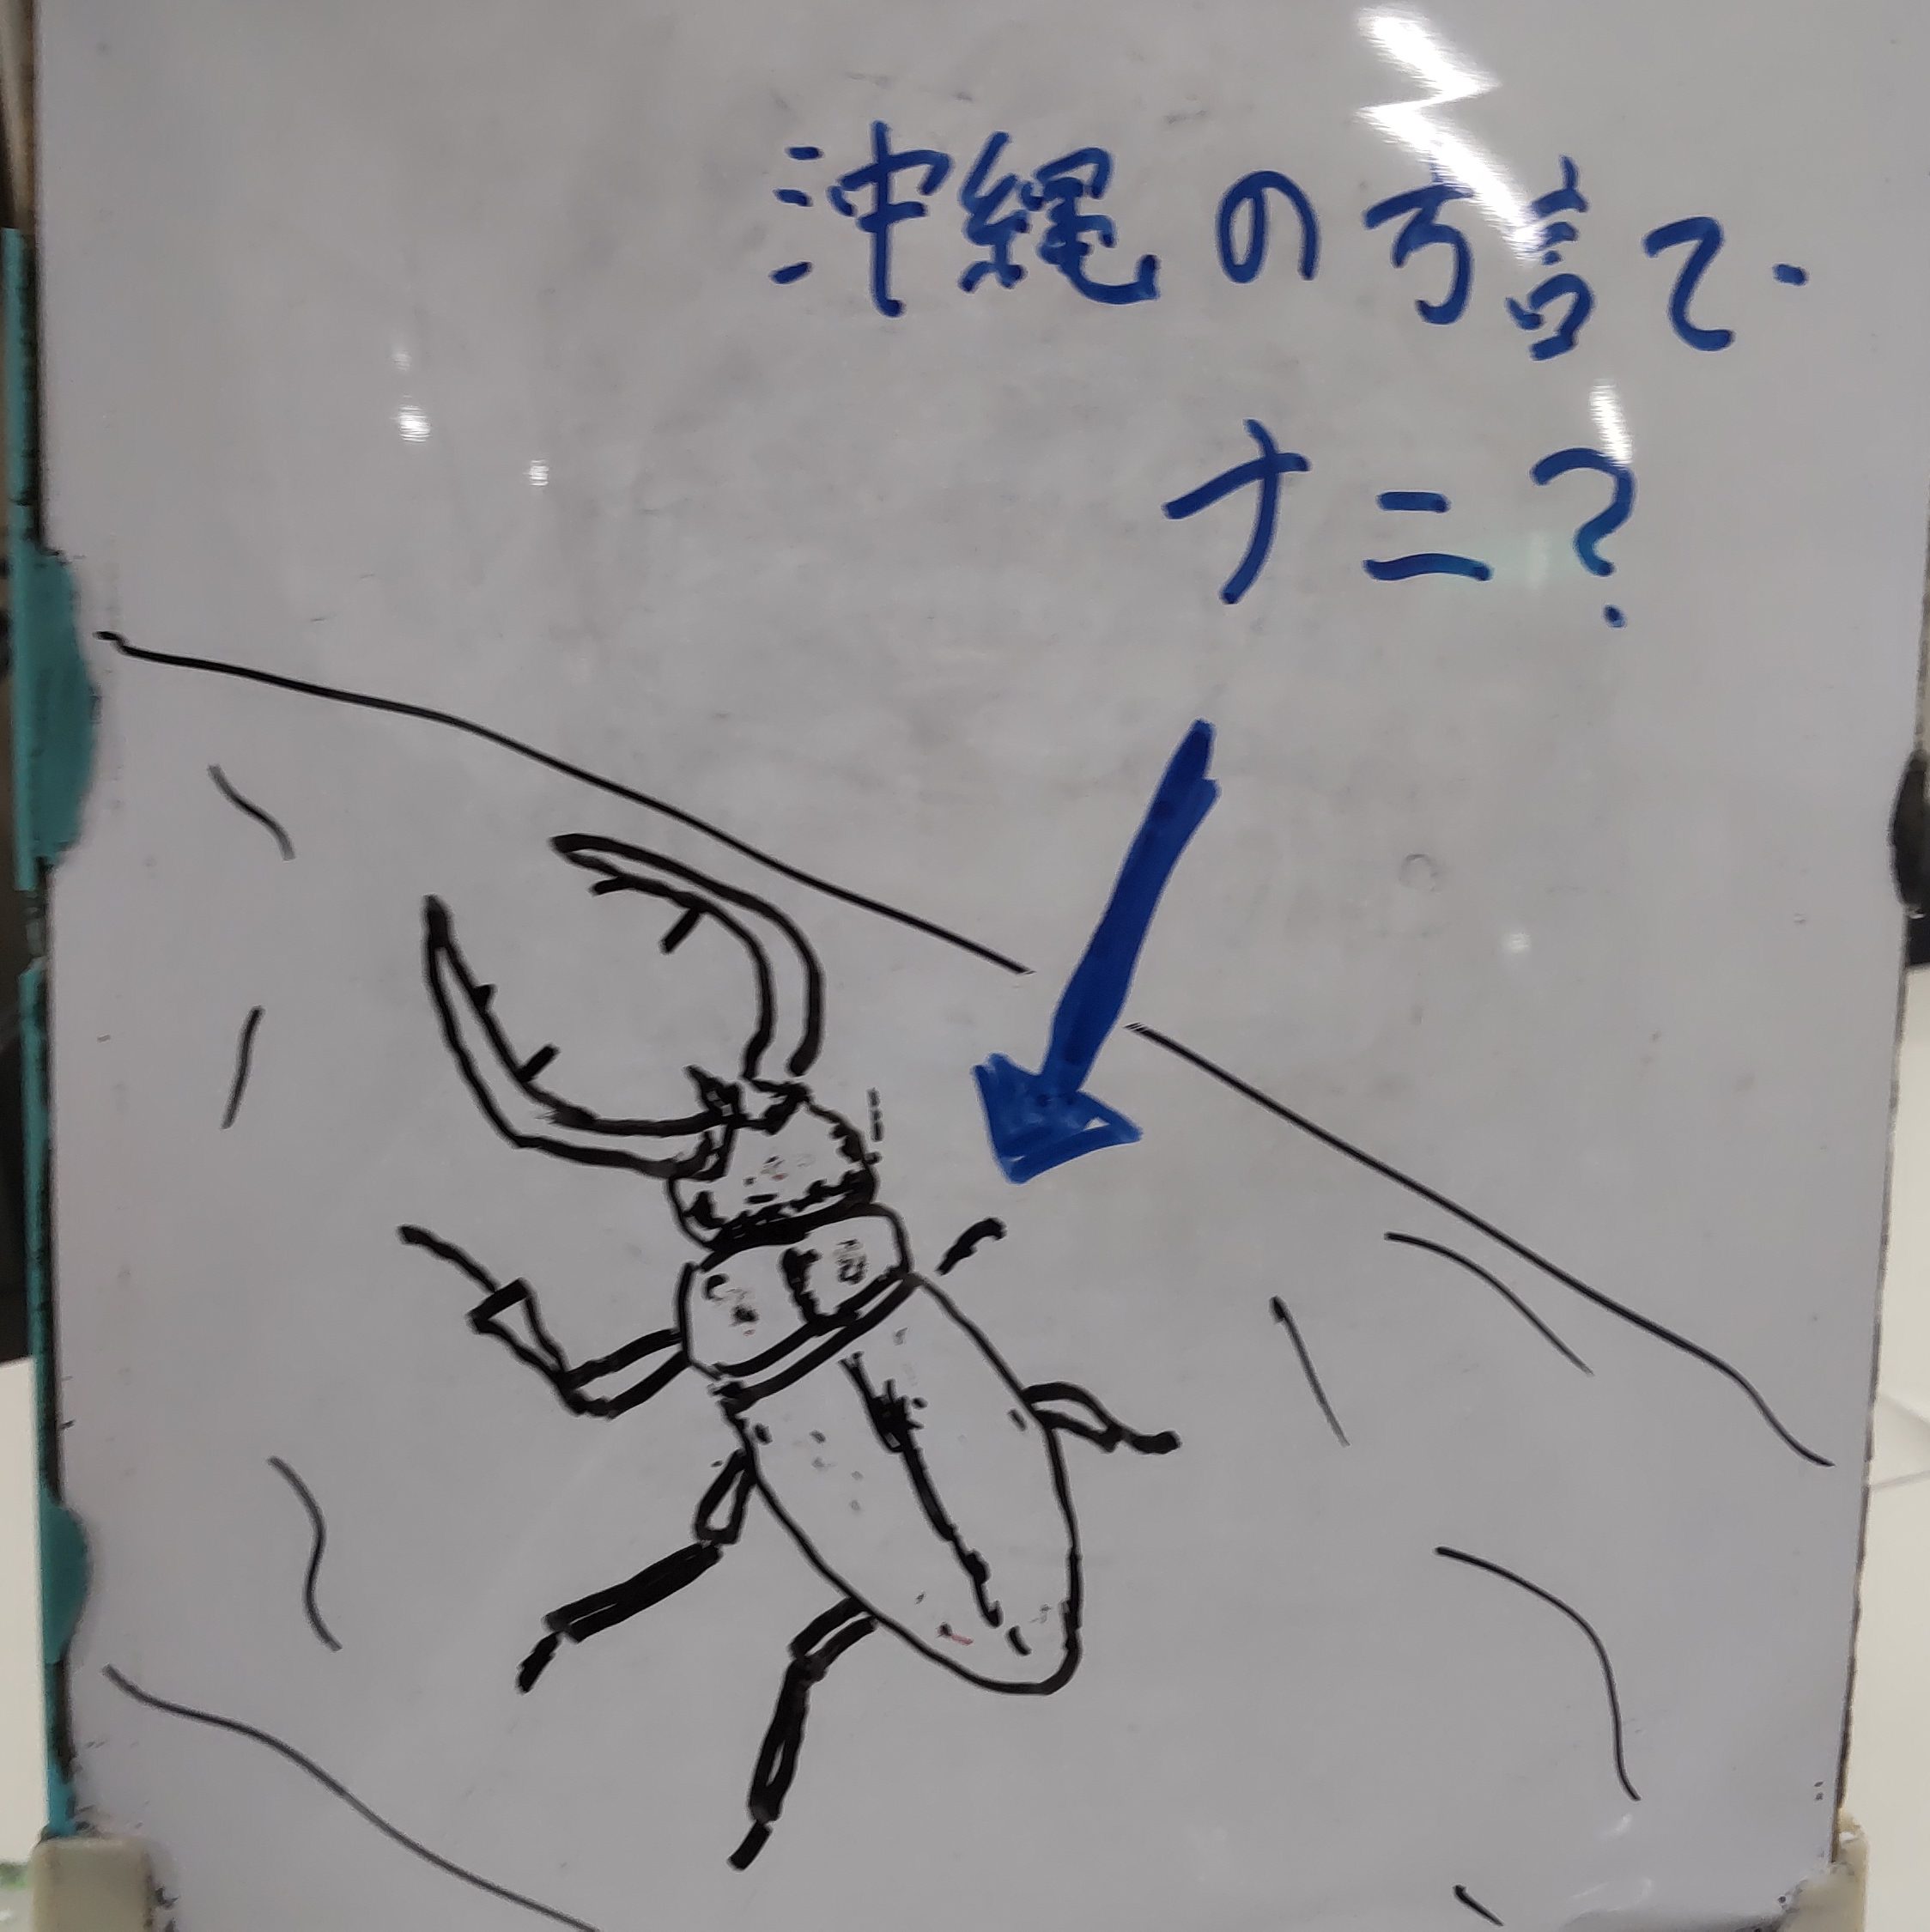 沖縄の方言で
ナニ?